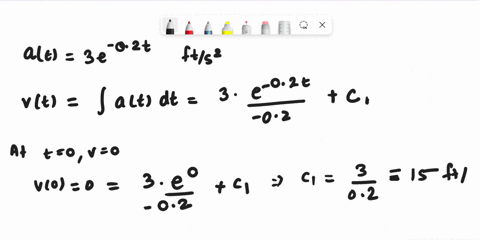 a(t) = 3e^{-0.2t} ft/s²
v(t) = ∫ a(t) dt = 3 · \frac{e^{-0.2t}}{-0.2} + C₁
At t=0, v=0
v(0) = 0 = \frac{3 · e^0}{-0.2} + C₁ ⇒ C₁ = \frac{3}{0.2} = 15 ft/